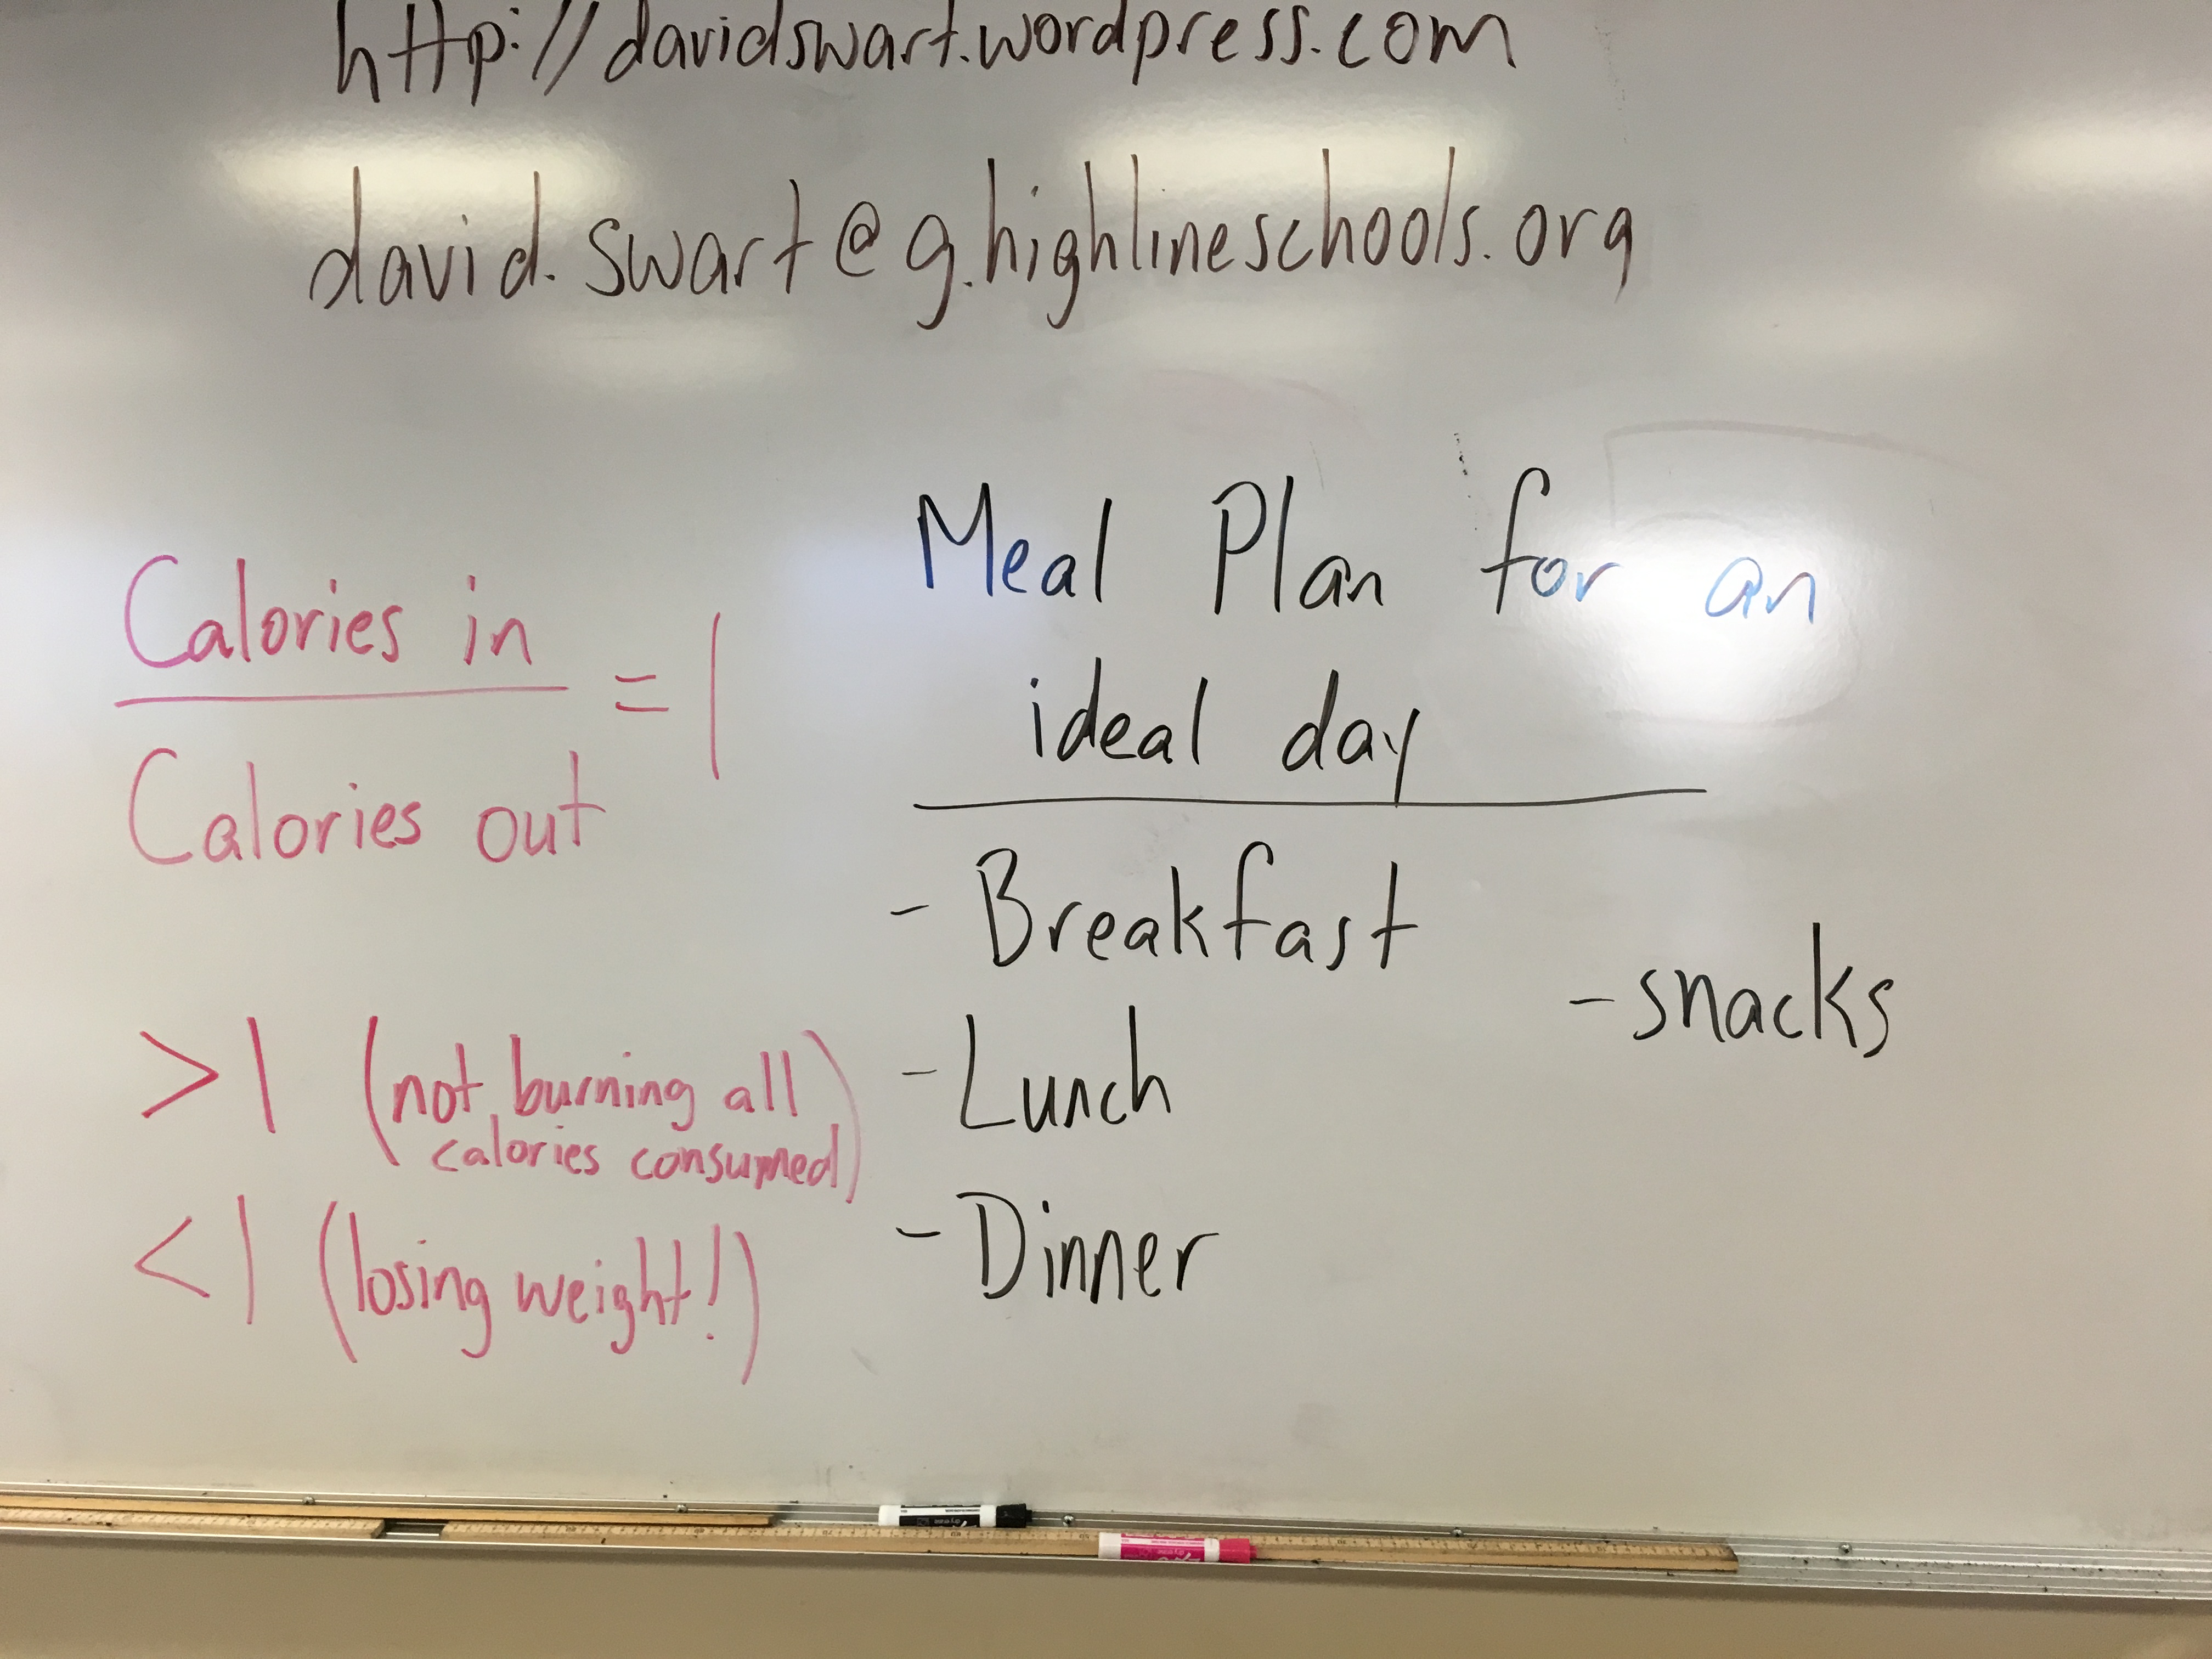 http://davidswart.wordpress.com
david.swart@g.highlineschools.org
Calories in
= 1
Calories out
>1 (not burning all
calories consumed)
<1 (losing weight!)
Meal Plan for an
ideal day
- Breakfast
- snacks
- Lunch
- Dinner